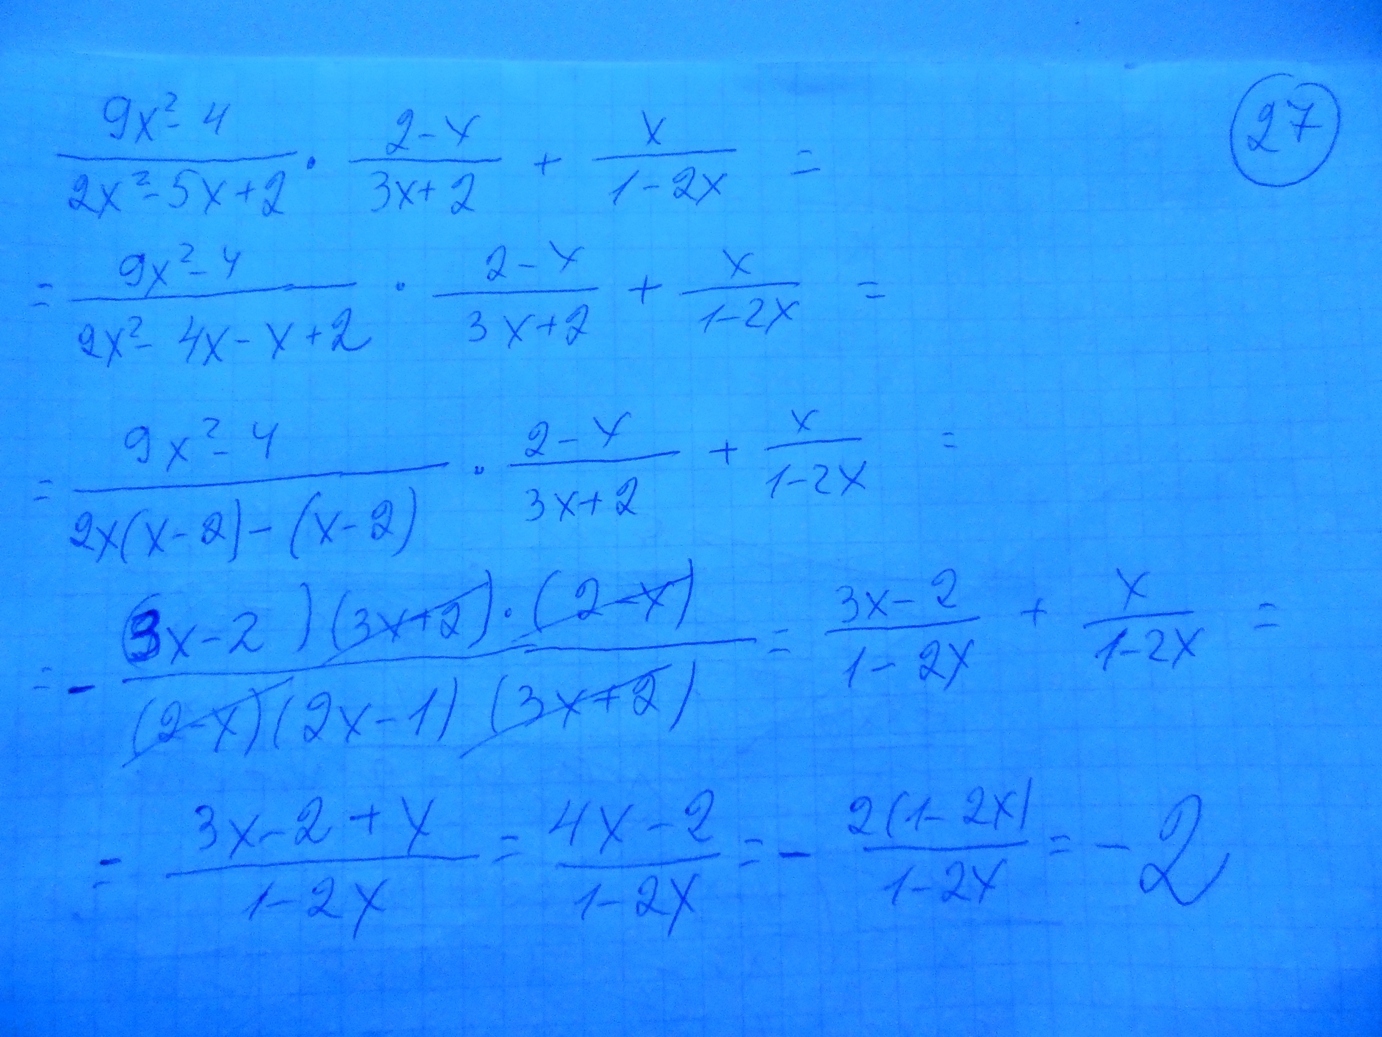 (9x² - 4)/(2x² - 5x + 2) · (2 - x)/(3x + 2) + x/(1 - 2x) =
27
= (9x² - 4)/(2x² - 4x - x + 2) · (2 - x)/(3x + 2) + x/(1 - 2x) =
= (9x² - 4)/(2x(x - 2) - (x - 2)) · (2 - x)/(3x + 2) + x/(1 - 2x) =
= - ((3x - 2)(3x + 2) · (2 - x))/((2 - x)(2x - 1)(3x + 2)) = (3x - 2)/(1 - 2x) + x/(1 - 2x) =
= (3x - 2 + x)/(1 - 2x) = (4x - 2)/(1 - 2x) = - 2(1 - 2x)/(1 - 2x) = - 2